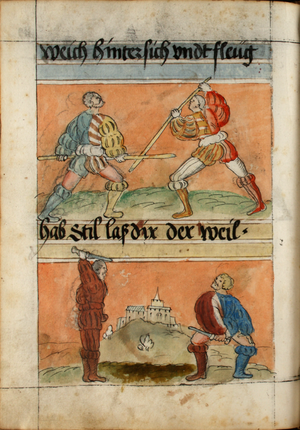 Weich hinter sich vndt fleüg
hab Stil laß dir der weil.